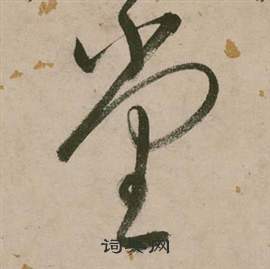 堂
词典网